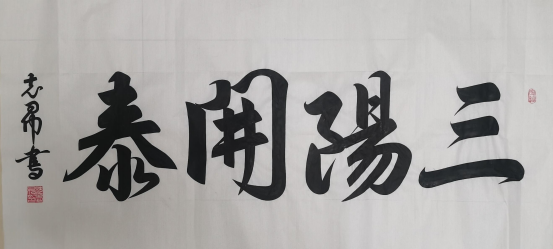 三陽開泰
志昂書